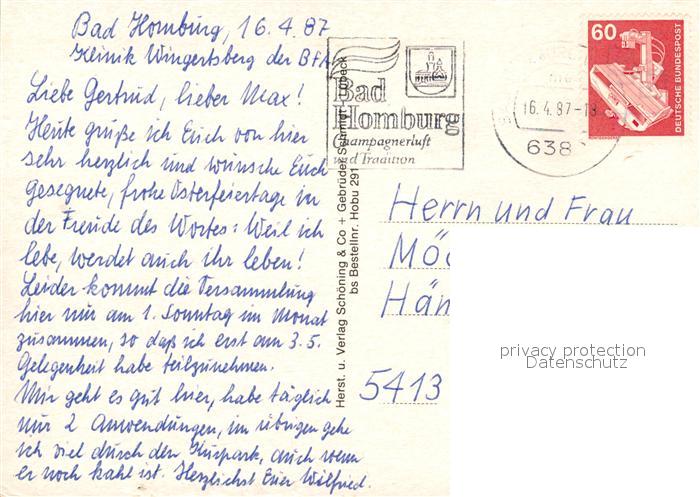 Bad Homburg, 16.4.87
Klinik Wingertsberg der BfA
Liebe Gertrud, lieber Max!
Heute grüße ich Euch von hier
sehr herzlich und wünsche Euch
gesegnete, frohe Osterfeiertage in
der Freude des Wortes: Weil ich
lebe, werdet auch ihr leben!
Leider kommt die Versammlung
hier nur am 1. Sonntag im Monat
zusammen, so daß ich erst am 3.5.
Gelegenheit habe teilzunehmen.
Mir geht es gut hier, habe täglich
nur 2 Anwendungen, im übrigen gehe
ich viel durch den Kurpark, auch wenn
er noch kahl ist. Herzlichst Euer Wilfried.
Herst. u. Verlag Schöning & Co + Gebrüder Schmidt, Lübeck
bs Bestellnr. Hobu 291
Bad
Homburg
Champagnerluft
und Tradition
16.4.87-18
638
60
DEUTSCHE BUNDESPOST
Herrn und Frau
Mö
Hän
5413
privacy protection
Datenschutz